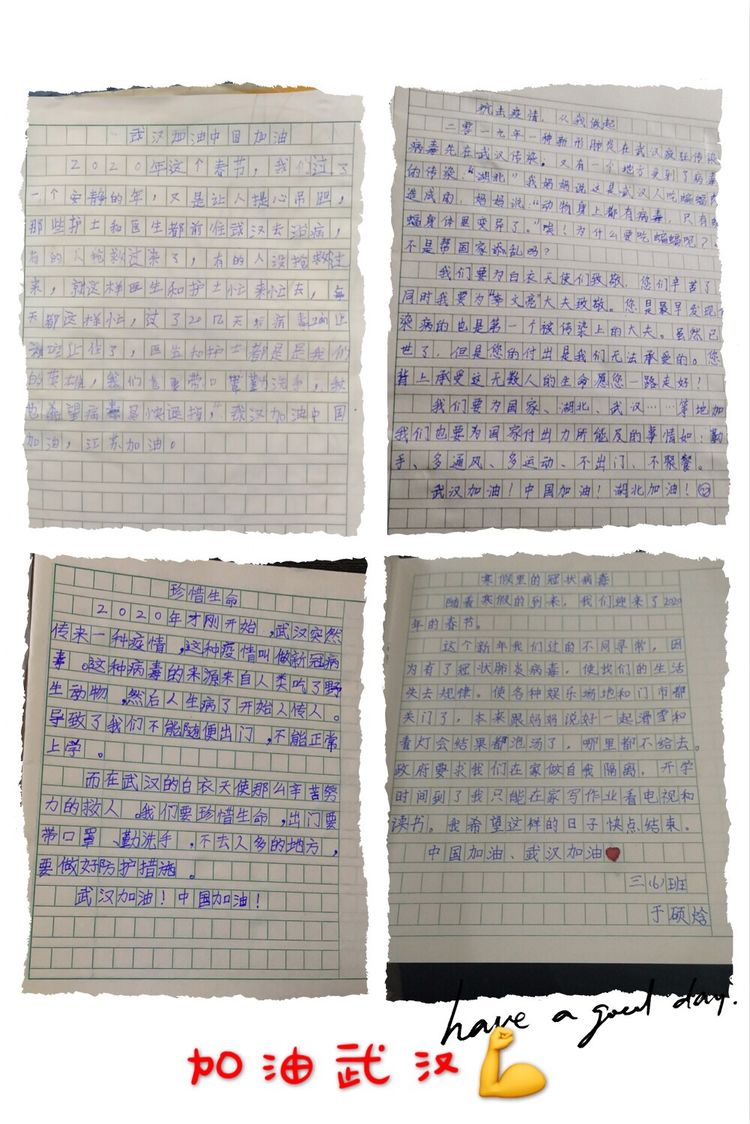 武汉加油中国加油
2020年这个春节，我们过了
一个安静的年，又是让人提心吊胆，
那些护士和医生都前往武汉去治病，
有的人抢救过来了，有的人没抢救过
来，就这样医生和护士忙来忙去，每
天都这样忙，过了20几天
了，医生和护士都是我们
的英雄，我们要带口罩勤洗手，我
也希望病毒赶快，武汉加油中国
加油，江苏加油。
抗击疫情，从我做起
二零一九年一种新形肺炎在武汉疯狂传染
病毒先在武汉传染。又有一个地方受到了病毒
的传染：“湖北”我妈妈说这是武汉人吃蝙蝠
造成的，妈妈说“动物身上都有病毒，只有
蝠身体里变异了。”唉！为什么要吃蝙蝠呢？
不是帮国家添乱吗？
我们要为白衣天使们致敬，您们辛苦了
同时我要为“李文亮”大夫致敬。您是最早发现
染病的也是第一个被传染上的大夫。虽然已
世了，但是您的付出是我们无法承受的。您
背上承受这无数人的生命愿您一路走好！
我们要为国家、湖北、武汉……等地加
我们也要为国家付出力所能及的事情如：勤
手、多通风、多运动、不出门、不聚餐。
武汉加油！中国加油！湖北加油！
珍惜生命
2020年才刚开始，武汉突然
传来一种疫情，这种疫情叫做新冠病
毒。这种病毒的来源来自人类吃了野
生动物，然后人生病了开始人传人。
导致了我们不能随便出门，不能正常
上学。
而在武汉的白衣天使那么辛苦努
力的救人。我们要珍惜生命，出门要
带口罩、勤洗手，不去人多的地方，
要做好防护措施。
武汉加油！中国加油！
寒假里的冠状病毒
随着寒假的到来，我们迎来了2020
年的春节。
这个新年我们过的不同寻常，因
为有了冠状肺炎病毒，使我们的生活
失去规律。使各种娱乐场地和门市都
关门了，本来跟妈妈说好一起滑雪和
看灯会结果都泡汤了，哪里都不给去。
政府要求我们在家做自我隔离，开学
时间到了我只能在家写作业看电视和
读书。我希望这样的日子快点结束。
中国加油、武汉加油❤
三(6)班
于硕焓
have a good day.
加油武汉💪